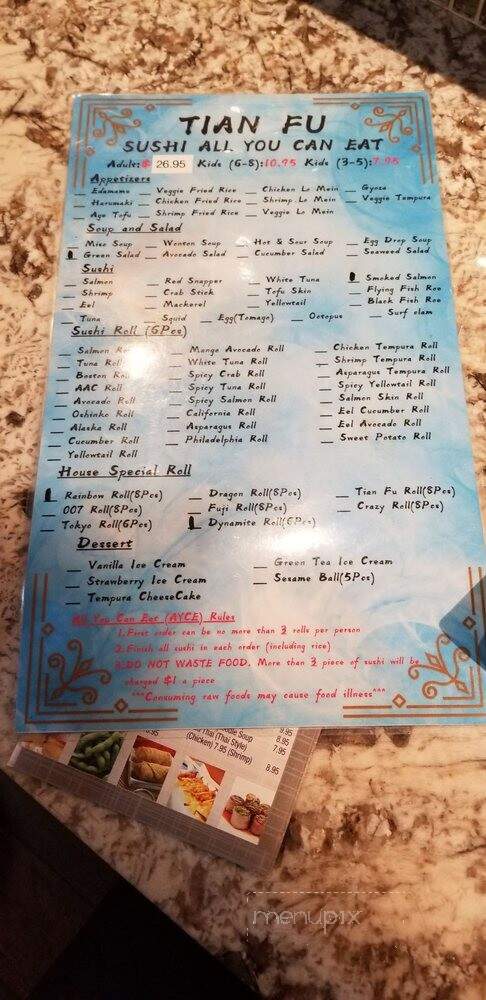 TIAN FU
SUSHI ALL YOU CAN EAT
Adult:$ 26.95 Kids (6-8):10.95 Kids (3-5):7.95
Appetizers
Edamame Veggie Fried Rice Chicken Lo Mein Gyoza
Harumaki Chicken Fried Rice Shrimp Lo Mein Veggie Tempura
Age Tofu Shrimp Fried Rice Veggie Lo Mein
Soup and Salad
Miso Soup Wonton Soup Hot & Sour Soup Egg Drop Soup
Green Salad Avocado Salad Cucumber Salad Seaweed Salad
Sushi
Salmon Red Snapper White Tuna Smoked Salmon
Shrimp Crab Stick Tofu Skin Flying Fish Roe
Eel Mackerel Yellowtail Black Fish Roe
Tuna Squid Egg(Tomago) Octopus Surf clam
Sushi Roll (6Pcs)
Salmon Roll Mango Avocado Roll Chicken Tempura Roll
Tuna Roll White Tuna Roll Shrimp Tempura Roll
Boston Roll Spicy Crab Roll Asparagus Tempura Roll
AAC Roll Spicy Tuna Roll Spicy Yellowtail Roll
Avocado Roll Spicy Salmon Roll Salmon Skin Roll
Oshinko Roll California Roll Eel Cucumber Roll
Alaska Roll Asparagus Roll Eel Avocado Roll
Cucumber Roll Philadelphia Roll Sweet Potato Roll
Yellowtail Roll
House Special Roll
Rainbow Roll(8Pcs) Dragon Roll(8Pcs) Tian Fu Roll(8Pcs)
007 Roll(8Pcs) Fuji Roll(8Pcs) Crazy Roll(8Pcs)
Tokyo Roll(6Pcs) Dynamite Roll(6Pcs)
Dessert
Vanilla Ice Cream Green Tea Ice Cream
Strawberry Ice Cream Sesame Ball(5Pcs)
Tempura CheeseCake
All You Can Eat (AYCE) Rules
1.First order can be no more than 3 rolls per person
2.Finish all sushi in each order (including rice)
3.DO NOT WASTE FOOD. More than 3 piece of sushi will be
charged $1 a piece
***Consuming raw foods may cause food illness***
Soup 8.95
Thai (Thai Style) 7.95
(Chicken) 7.95 (Shrimp)
8.95
menupix